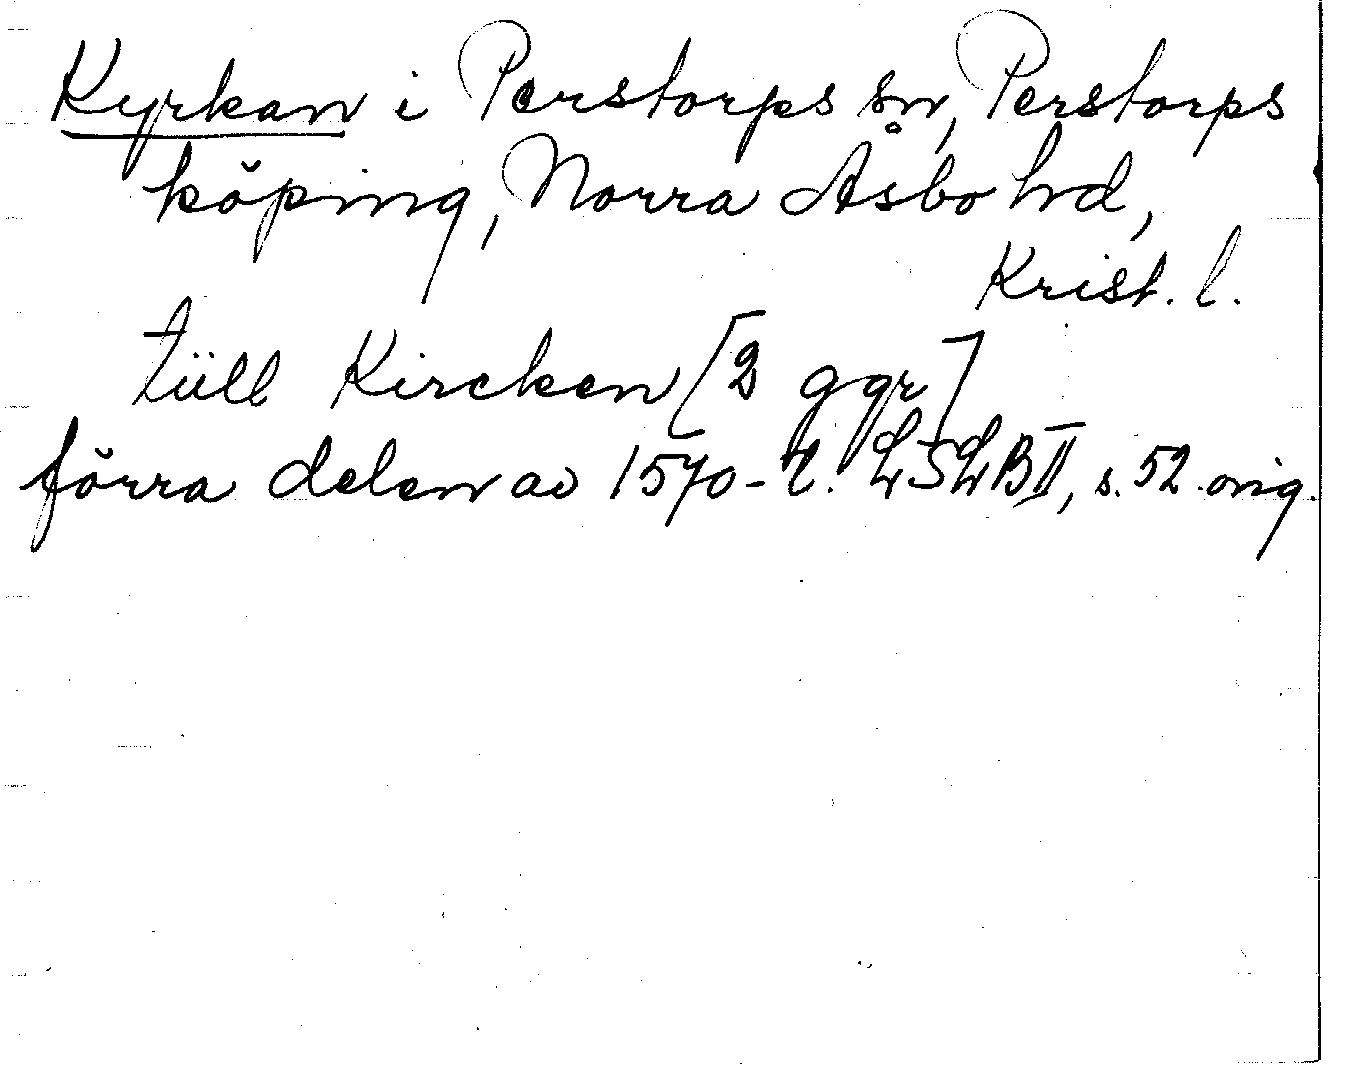 Kyrkan i Perstorps sn, Perstorps
köping, Norra Åsbo hd,
Krist. l.
tüll Kircken [2 ggr]
förra delen av 1570-t. LSLB II, s. 52 orig.